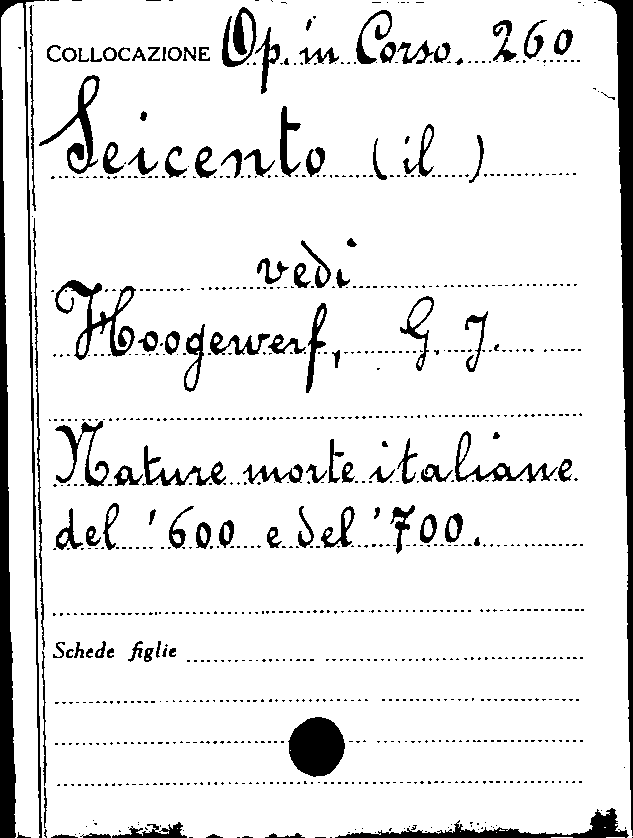 COLLOCAZIONE Op. in Corso. 260
Seicento (il)
vedi
Hoogewerf, G. J.
Nature morte italiane
del '600 e del '700.
Schede figlie